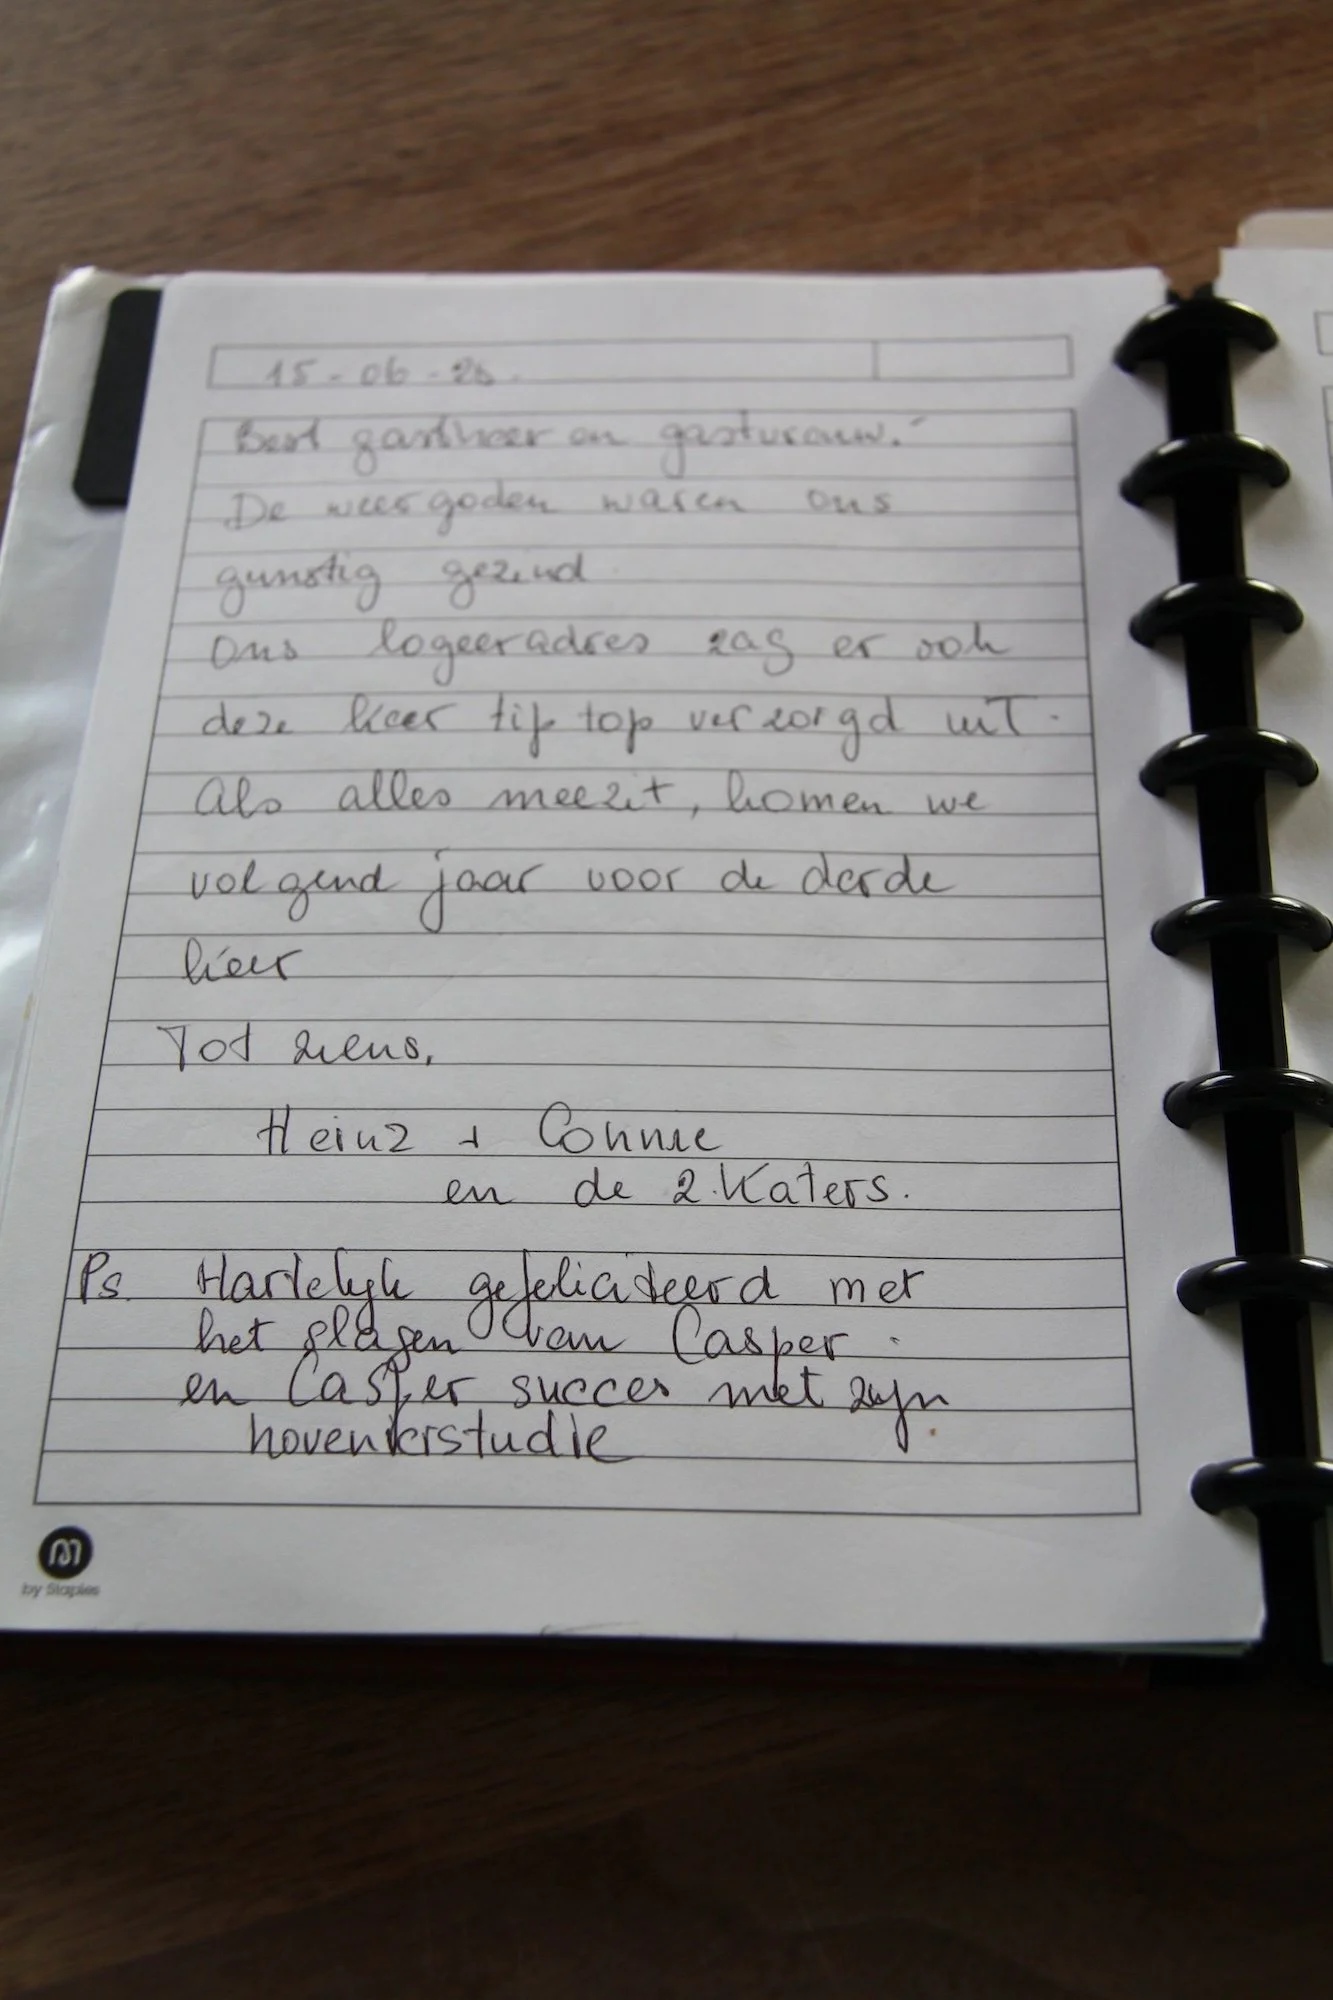 15-06-25.
Best gastheer en gastvrouw.
De weergoden waren ons
gunstig gezind.
Ons logeeradres zag er ook
deze keer tip top verzorgd uit.
Als alles meezit, komen we
volgend jaar voor de derde
keer
Tot ziens,
Heinz + Connie
en de 2 Katers.
Ps. Hartelijk gefeliciteerd met
het slagen van Casper.
en Casper succes met zijn
hoveniersstudie
M
by Staples